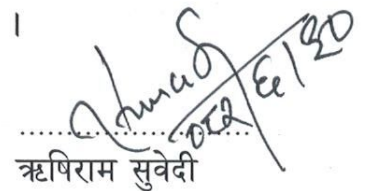 ।
०८२/६/३०
....................................
ऋषिराम सुवेदी